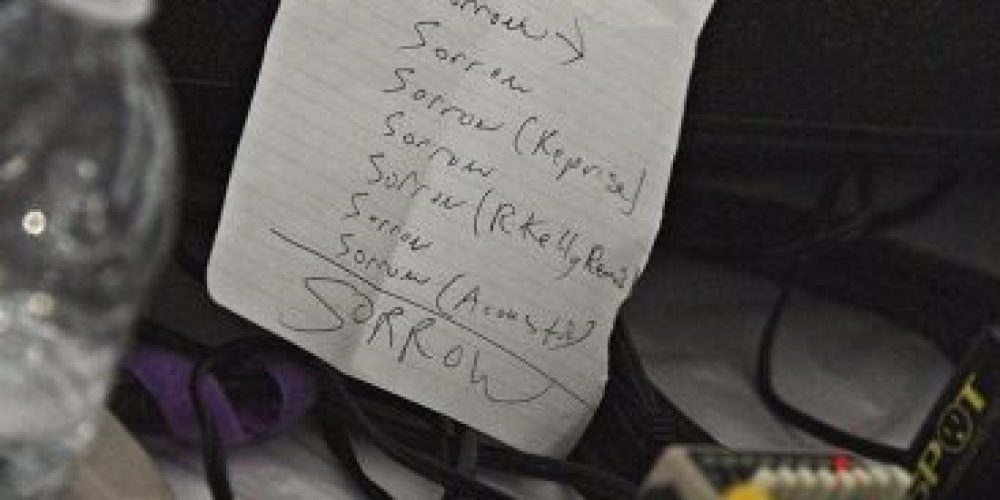 Sorrow →
Sorrow
Sorrow (Reprise)
Sorrow
Sorrow (R Kelly Remix)
Sorrow
Sorrow (Acoustic)
SORROW
SPOT